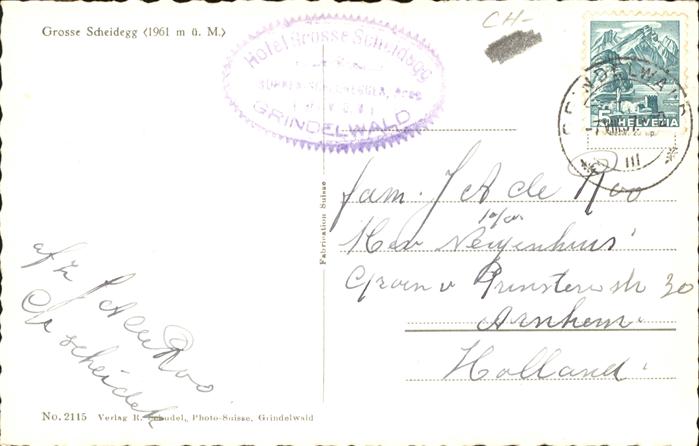 Grosse Scheidegg (1961 m ü. M.)
Hotel Grosse Scheidegg
GRINDELWALD
CH-
5 HELVETIA
GRINDELWALD
III
Fabrication Suisse
fam. J A de Roo
Huv Neyenhuis
Groen v Prinstero str 30
Arnhem.
Holland.
afz J A de Roo
Gr scheidek
No. 2115 Verlag R. Schudel, Photo-Suisse, Grindelwald